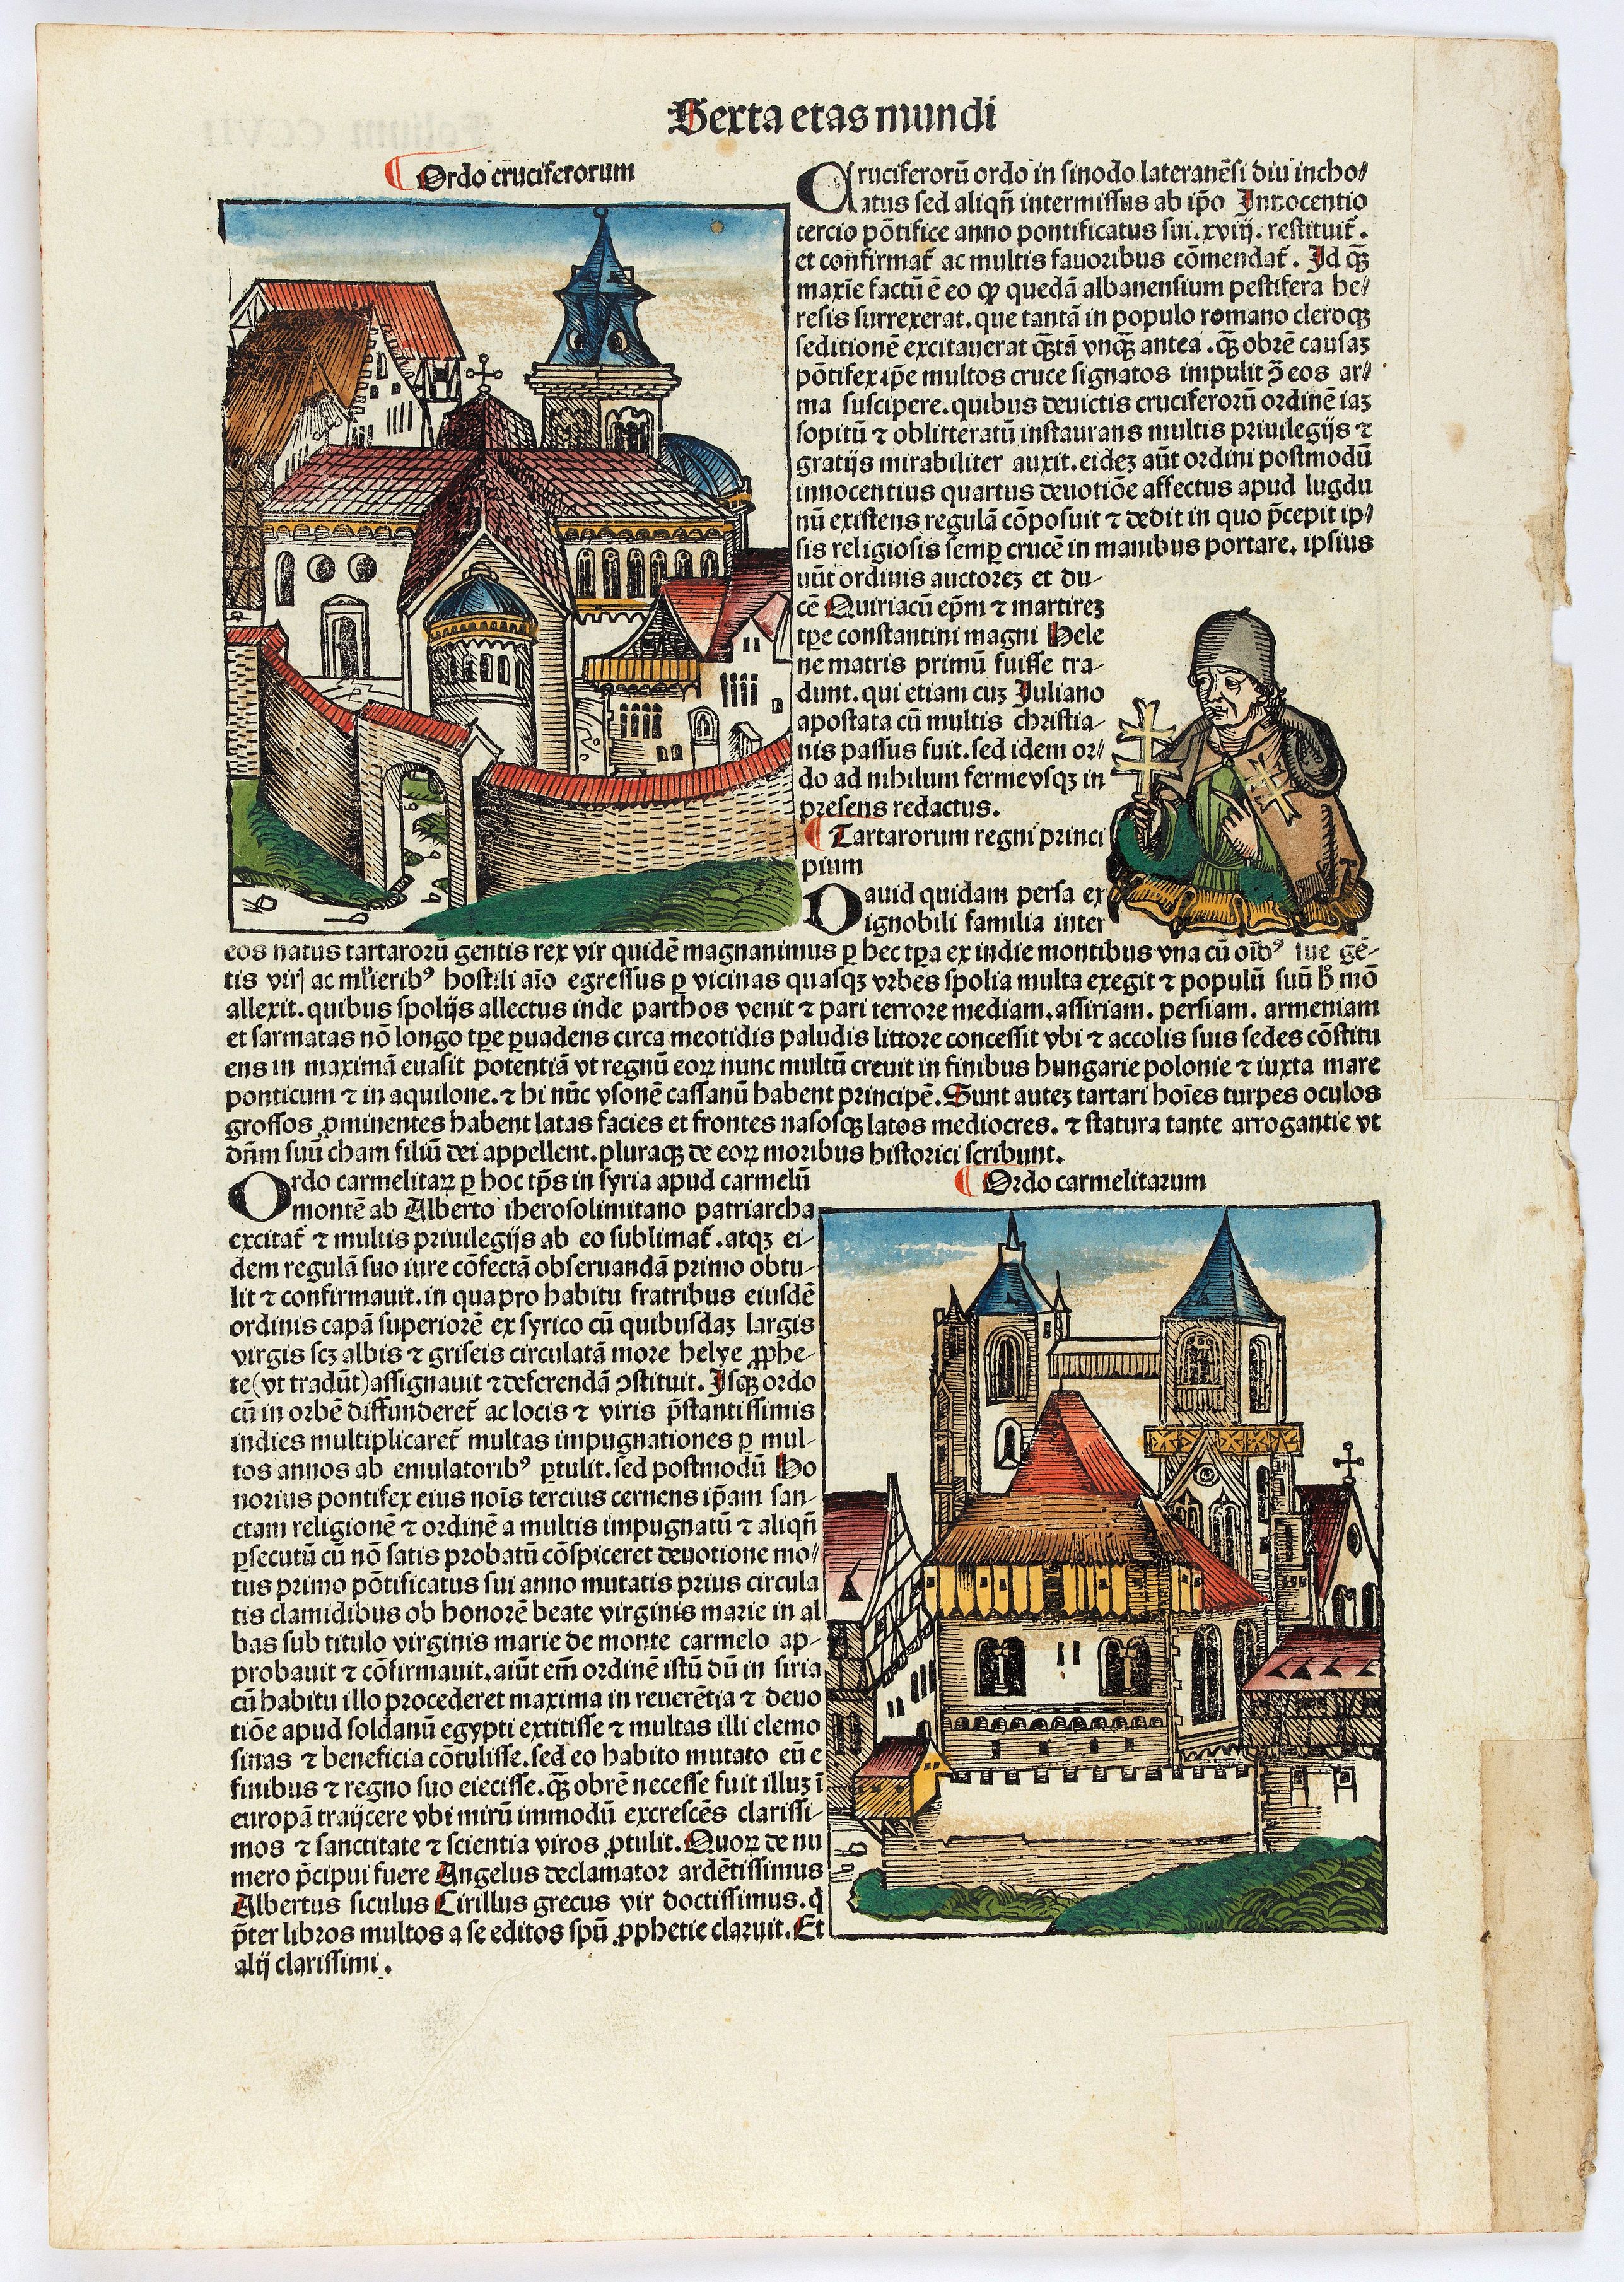 Sexta etas mundi
Ordo cruciferorum
Cruciferorū ordo in sinodo lateranēsi diu incho/
atus sed aliqñ intermissus ab ip̄o Innocentio
tercio pōtifice anno pontificatus sui.xviij. restituit᷑.
et confirmat᷑ ac multis fauoribus cōmendat᷑. Id qȝ
maxīe factū ē eo ꝙ quedā albanensium pestifera he/
resis surrexerat.que tantā in populo romano cleroqȝ
seditionē excitauerat qȝtā vnqȝ antea.qȝ obrē causaȝ
pōtifex ip̄e multos cruce signatos impulit ꝯ̄ eos ar/
ma suscipere.quibus deuictis cruciferorū ordinē iaȝ
sopitū ⁊ oblitteratū instaurans multis priuilegijs ⁊
gratijs mirabiliter auxit.eideȝ aūt ordini postmodū
innocentius quartus deuotiōe affectus apud lugdu
nū existens regulā cōposuit ⁊ dedit in quo p̄cepit ip/
sis religiosis semꝑ crucē in manibus portare. ipsius
uūt ordinis auctoreȝ et du-
cē Quiriacū ep̄m ⁊ martireȝ
tꝑe constantini magni Hele
ne matris primū fuisse tra-
dunt.qui etiam cuȝ Iuliano
apostata cū multis christia-
nis passus fuit.sed idem or/
do ad nihilum fermevsqȝ in
presens redactus.
Tartarorum regni princi
pium
Dauid quidam persa ex
ignobili familia inter
eos natus tartarorū gentis rex vir quidē magnanimus ꝑ hec tꝑa ex indie montibus vna cū oībꝰ sue gē-
tis virꝭ ac ml̄ieribꝰ hostili aīo egressus ꝑ vicinas quasqȝ vrbes spolia multa exegit ⁊ populū suū h̊ mō
allexit.quibus spolijs allectus inde parthos venit ⁊ pari terrore mediam.assiriam. persiam. armeniam
et sarmatas nō longo tꝑe ꝑuadens circa meotidis paludis littore concessit vbi ⁊ accolis suis sedes cōstitu
ens in maximā euasit potentiā vt regnū eoꝝ nunc multū creuit in finibus hungarie polonie ⁊ iuxta mare
ponticum ⁊ in aquilone.⁊ hi nūc vsonē cassanū habent principē. Sunt auteȝ tartari hoīes turpes oculos
grossos ꝓminentes habent latas facies et frontes nasosqȝ latos mediocres. ⁊ statura tante arrogantie vt
dn̄m suū cham filiū dei appellent.pluraqȝ de eoꝝ moribus historici scribunt.
Ordo carmelitaꝝ ꝑ hoc tp̄s in syria apud carmelū
montē ab Alberto iherosolimitano patriarcha
excitat᷑ ⁊ multis priuilegijs ab eo sublimat᷑.atqȝ ei-
dem regulā suo iure cōfectā obseruandā primo obtu-
lit ⁊ confirmauit.in qua pro habitu fratribus eiusdē
ordinis capā superiorē ex syrico cū quibusdaȝ largis
virgis scȝ albis ⁊ griseis circulatā more helye ꝓphe-
te(vt tradūt)assignauit ⁊deferendā ꝯstituit. Isqȝ ordo
cū in orbē diffunderet᷑ ac locis ⁊ viris p̄stantissimis
indies multiplicaret᷑ multas impugnationes ꝑ mul-
tos annos ab emulatoribꝰ ꝑtulit.sed postmodū Ho
norius pontifex eius noīs tercius cernens ip̄am san-
ctam religionē ⁊ ordinē a multis impugnatū ⁊ aliqñ
ꝑsecutū cū nō satis probatū cōspiceret deuotione mo/
tus primo pōtificatus sui anno mutatis prius circula
tis clamidibus ob honorē beate virginis marie in al
bas sub titulo virginis marie de monte carmelo ap-
probauit ⁊ cōfirmauit.aiūt em̄ ordinē istū dū in siria
cū habitu illo procederet maxima in reuerētia ⁊ deuo
tiōe apud soldanū egypti extitisse ⁊ multas illi elemo
sinas ⁊ beneficia cōtulisse.sed eo habito mutato eū e
finibus ⁊ regno suo eiecisse.qȝ obrē necesse fuit illuȝ ī
europā traijcere vbi mirū immodū excrescēs clarissi-
mos ⁊ sanctitate ⁊ scientia viros ꝓtulit. Quoꝝ de nu
mero p̄cipui fuere Angelus declamator ardētissimus
Albertus siculus Cirillus grecus vir doctissimus.q̄
p̄ter libros multos a se editos spū ꝓphetie claruit. Et
alij clarissimi.
Ordo carmelitarum